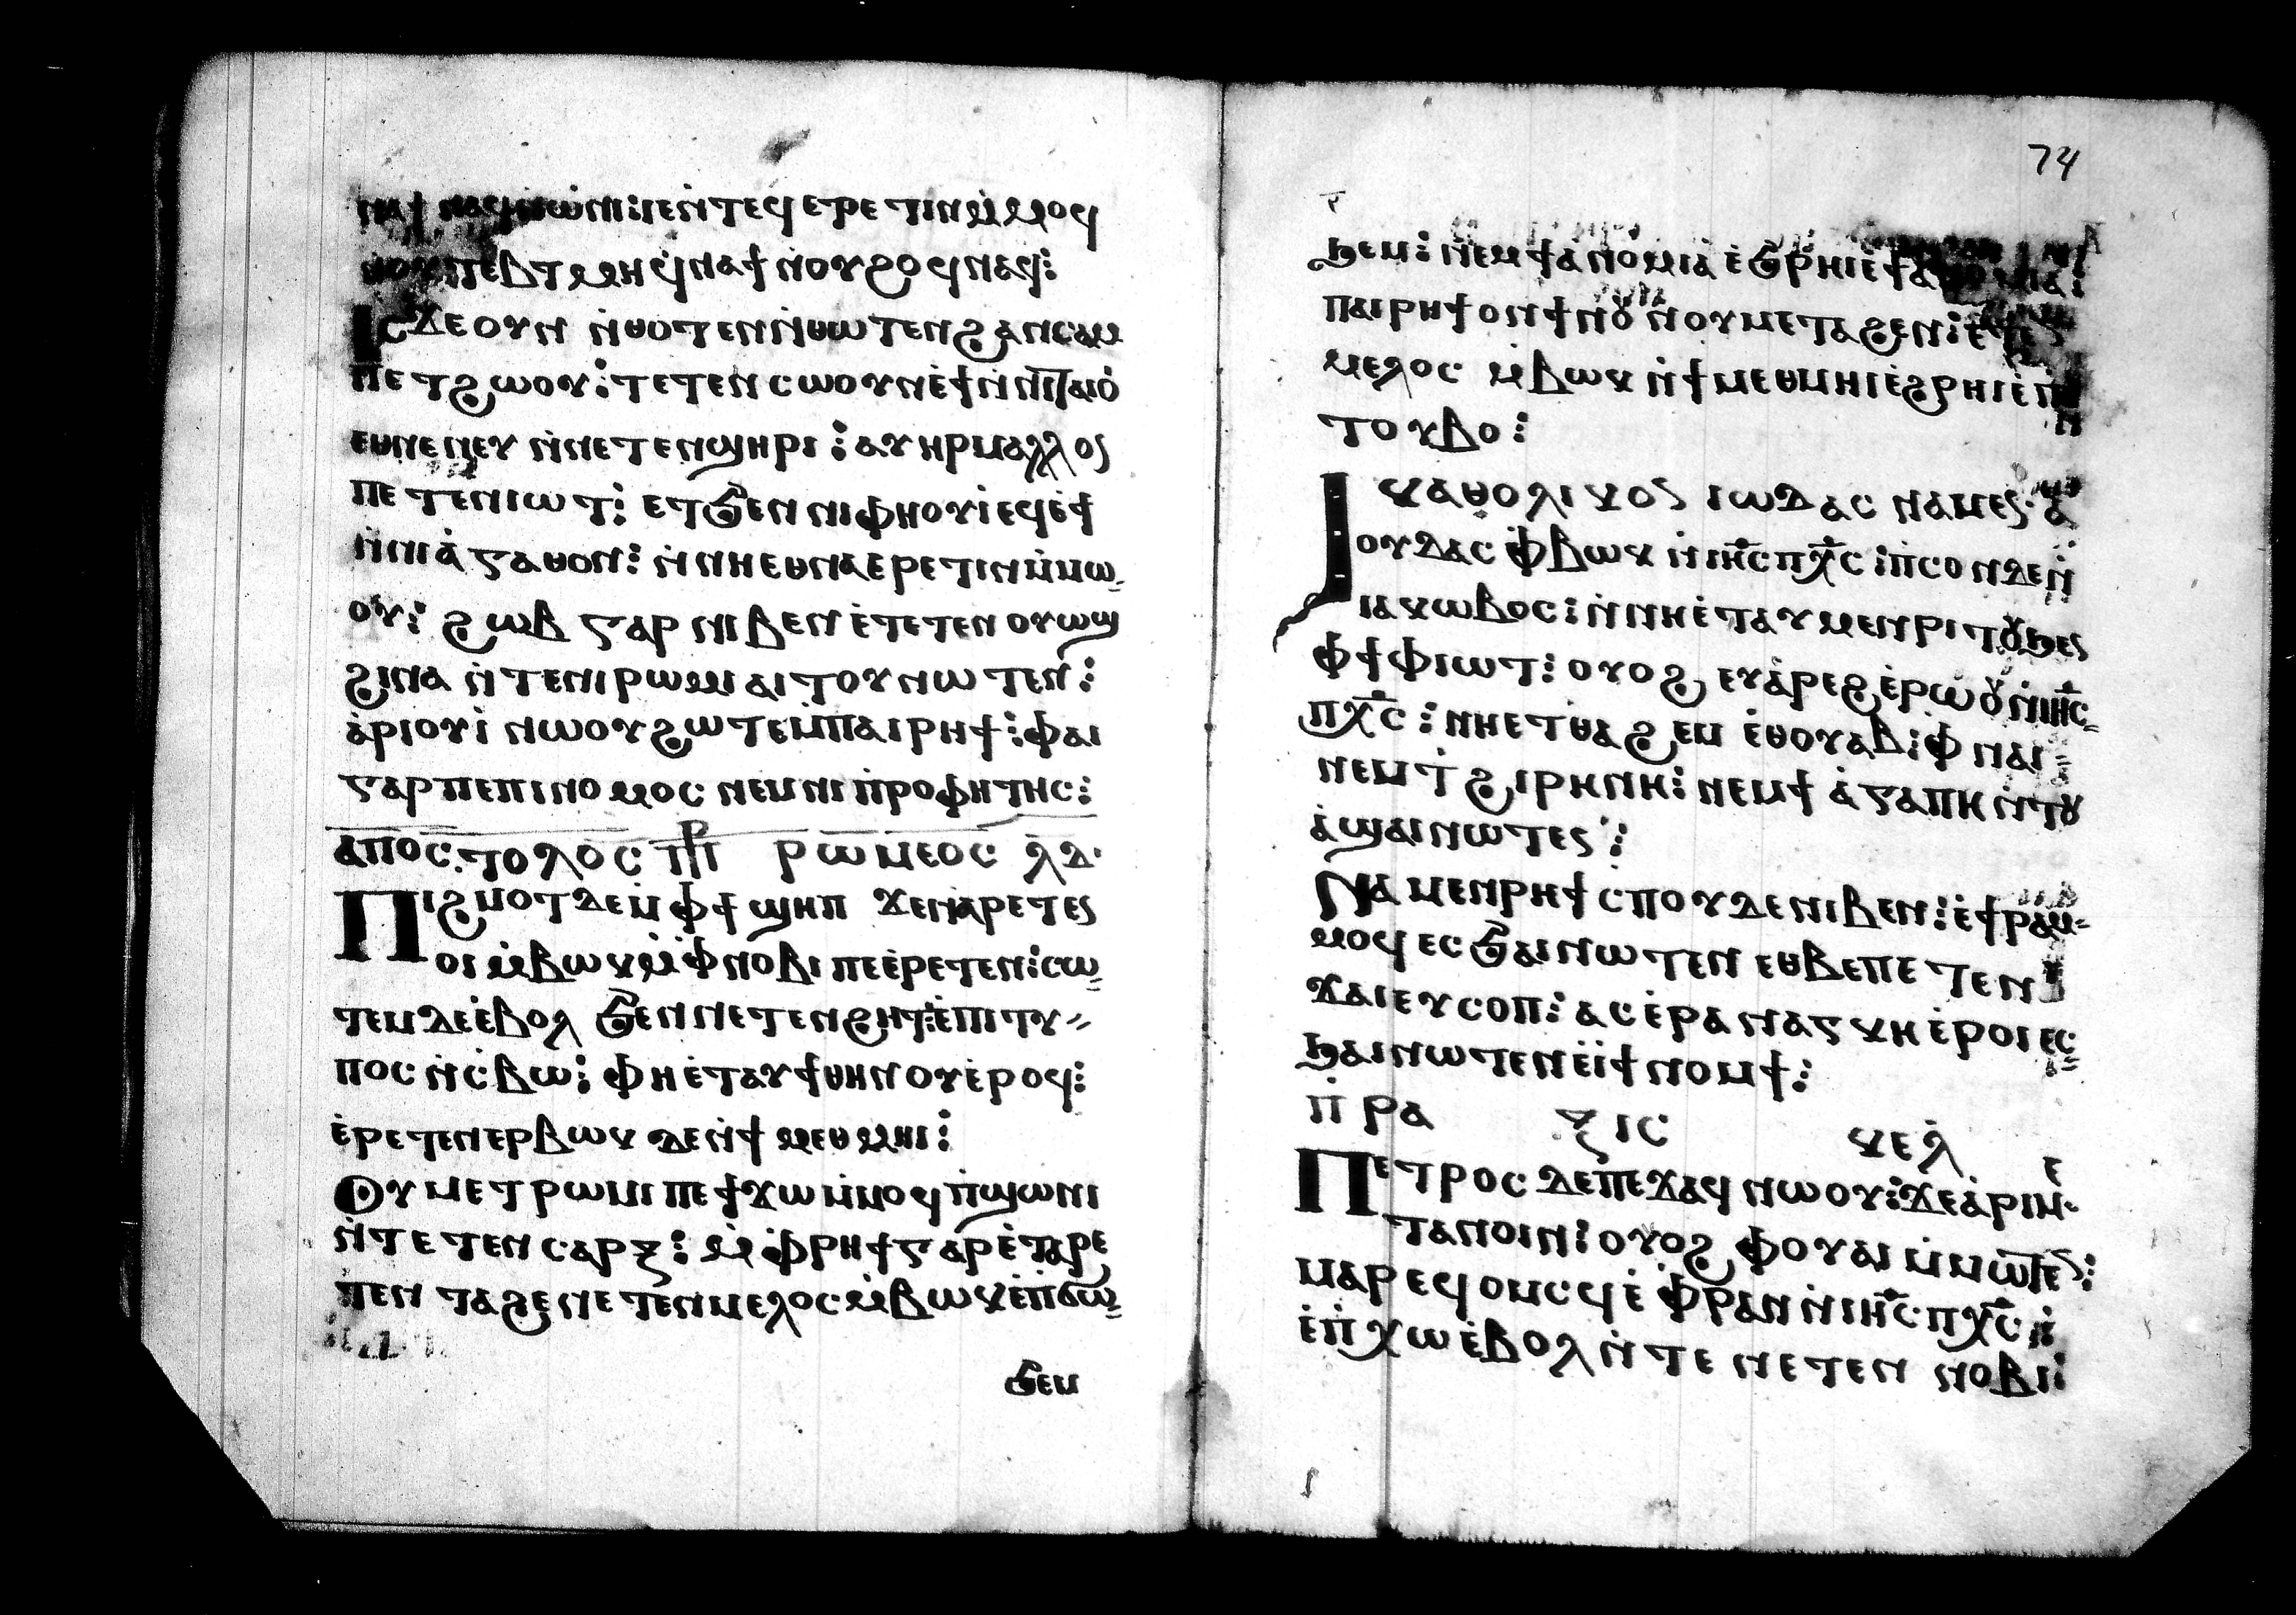 ⲛⲁϯ ⲛⲁϥⲛⲱⲛⲓ: ⲓⲉⲛⲧⲉϥ ⲉⲣⲉ ⲧⲓⲛⲙ̀ⲙⲟϥ
ⲡⲉⲃⲧ ⲙⲏ ϥ̀ⲛⲁϯ ⲛ̀ⲟⲩϩⲟϥ ⲛⲁϥ:
Ⲓⲥϫⲉ ⲟⲩⲛ ⲛ̀ⲑⲟⲧⲉⲛ ⲛ̀ⲑⲱⲧⲉⲛ ϩⲁⲛⲥⲁⲙ
ⲡⲉⲧϩⲱⲟⲩ: ⲧⲉⲧⲉⲛⲥⲱⲟⲩⲛ ⲉ̀ϯ ⲛ̀ⲛⲓⲧⲁⲓⲟ̀
ⲉⲑⲛⲉⲛⲉⲩ ⲛ̀ⲛⲉⲧⲉⲛϣⲏⲣⲓ: ⲁⲩⲏⲣ ⲙⲁⲗⲗⲟⲥ
ⲡⲉⲧⲉⲛⲓⲱⲧ: ⲉⲧϧⲉⲛ ⲛⲓⲫⲏⲟⲩⲓ̀ ⲉϥⲉ̀ϯ
ⲛ̀ⲛⲓⲁ̀ⲅⲁⲑⲟⲛ: ⲛ̀ⲛⲏ ⲉⲑⲛⲁⲉⲣⲉⲧⲓⲛ ⲙ̀ⲙⲱ
ⲟⲩ: ϩⲱⲃ ⲅⲁⲣ ⲛⲓⲃⲉⲛ ⲉ̀ⲧⲉⲧⲉⲛ ⲟⲩⲱϣ
ϩⲓⲛⲁ ⲛ̀ⲧⲉⲛⲓⲣⲱⲙⲓ ⲁⲓⲧⲟⲩ ⲛⲱⲧⲉⲛ:
ⲁ̀ⲣⲓⲟⲩⲓ̀ ⲛⲱⲟⲩ ϩⲱⲧⲉⲙ̀ⲡⲁⲓⲣⲏϯ: ⲫⲁⲓ
ⲅⲁⲣ ⲡⲉ ⲡⲓⲛⲟⲙⲟⲥ ⲛⲉⲙ ⲛⲓⲡ̀ⲣⲟⲫⲏⲧⲏⲥ:
ⲁⲡⲟⲥⲧⲟⲗⲟⲥ ⲡⲣ ⲣⲱⲙⲉⲟⲥ ⲗⲇ.
Ⲡⲓϩⲙⲟⲧ ⲇⲉ ⲙ̀ⲫϯ ϣⲏⲡ ϫⲉ ⲛⲁⲣⲉⲧⲉⲥ
ⲟⲓ ⲙ̀ⲃⲱⲕ ⲙ̀ⲫⲛⲟⲃⲓ ⲡⲉ ⲉ̀ⲣⲉⲧⲉⲛ: ⲥⲱ
ⲧⲉⲙ ⲇⲉ ⲉ̀ⲃⲟⲗ ϧⲉⲛ ⲛⲉⲧⲉⲛϩⲏⲧ: ⲉ̀ⲡⲓⲧⲩ
ⲡⲟⲥ ⲛ̀ⲥ̀ⲃⲱ: ⲫⲏ ⲉ̀ⲧⲁⲩϯⲑⲏⲛⲟⲩ ⲉ̀ⲣⲟϥ:
ⲉ̀ⲣⲉⲧⲉⲛ ⲉⲣⲃⲱⲕ ⲇⲉ ⲛ̀ϯⲙⲉⲑⲙⲏⲓ:
Ⲟⲩⲙⲉⲧⲣⲱⲙⲓ ⲡⲉϯϫⲱ ⲙ̀ⲙⲟϥ ⲡ̀ϣⲱⲛⲓ
ⲛ̀ⲧⲉⲧⲉⲛ ⲥⲁⲣⲝ: ⲙ̀ⲫⲣⲏϯ ⲅⲁⲣ ⲉ̀ⲧⲁⲣⲉ
ⲧⲉⲛ ⲧⲁϩⲉ ⲛⲉⲧⲉⲛⲙⲉⲗⲟⲥ ⲙ̀ⲃⲱⲕ ⲉ̀ⲡϭⲱ
ϧⲉⲙ
74
ϧⲉⲙ: ⲛⲉⲙ ϯⲁ̀ⲛⲟ̀ⲙⲓⲁ̀ ⲉ̀ϩ̀ⲣⲏⲓ ⲉ̀ϯⲁ̀ⲛⲟⲙⲓⲁ̀:
ⲡⲁⲓⲣⲏϯ ⲟⲛ ϯⲛⲟⲩ ⲛⲟⲩⲙⲉⲧⲁϩⲉⲛ:
ⲙⲉⲗⲟⲥ ⲙ̀ⲃⲱⲕ ⲛ̀ϯⲙⲉⲑⲙⲏⲓ ⲉ̀ϩⲣⲏⲓ ⲉ̀ⲡ
ⲧⲟⲩⲃⲟ:
ⲕⲁⲑⲟⲗⲓⲕⲟⲥ ⲓⲱⲇⲁⲥ ⲛⲁⲙⲉⲥ. ⲁ
Ⲓⲟⲩⲇⲁⲥ ⲫ̀ⲃⲱⲕ ⲛ̀ⲓⲏⲥ ⲡⲭⲥ: ⲡ̀ⲥⲟⲛ ⲇⲉ ⲛ̀
ⲓⲁⲕⲱⲃⲟⲥ: ⲛ̀ⲛⲏ ⲉ̀ⲧⲁⲩⲙⲉⲛⲣⲓⲧⲟⲩ ϧⲉⲥ
ⲫϯ ⲫⲓⲱⲧ: ⲟⲩⲟϩ ⲉⲩⲁ̀ⲣⲉϩ ⲉ̀ⲣⲱⲟⲩ ⲛ̀ⲓⲏⲥ
ⲡⲭⲥ: ⲛⲏ ⲉⲧⲑⲁϩⲉⲙ ⲉ̀ⲑⲟⲩⲁⲃ: ⲫⲛⲁⲓ
ⲛⲉⲙ ⲧ̀ϩⲓⲣⲏⲛⲏ: ⲛⲉⲙ ϯⲁ̀ⲅⲁⲡⲏ ⲛ̀ⲧⲟⲩ
ⲁ̀ϣⲁⲓ ⲛⲱⲧⲉⲥ:
Ⲛⲁⲙⲉⲛⲣⲏϯ ⲥⲡⲟⲩⲇⲉ ⲛⲓⲃⲉⲛ: ⲉ̀ϯⲣⲁⲙ
ⲙⲟϥ ⲉⲥϧⲁⲓ ⲛⲱⲧⲉⲛ ⲉⲑⲃⲉ ⲡⲉⲧⲉⲛ
ϫⲁⲓ ⲉⲩⲥⲟⲡ: ⲁⲥⲉ̀ⲣⲁⲛⲁⲅⲕⲏ ⲉ̀ⲣⲟⲓ ⲉⲥ
ϧⲁⲓ ⲛⲱⲧⲉⲛ ⲉ̀ⲓϯ ⲛⲟⲙϯ:
ⲡ̀ⲣⲁ ⲝⲓⲥ ⲕⲉⲗ ⲉ
Ⲡⲉⲧⲣⲟⲥ ⲇⲉ ⲡⲉϫⲁϥ ⲛⲱⲟⲩ: ϫⲉ ⲁ̀ⲣⲓⲙ
ⲧⲁⲛⲟⲓⲛ: ⲟⲩⲟϩ ⲫⲟⲩⲁⲓ ⲙ̀ⲙⲱⲧⲉⲥ:
ⲙⲁⲣⲉϥⲟⲙⲥϥ ⲉ̀ⲫⲣⲁⲛ ⲛ̀ⲓⲏⲥ ⲡⲭⲥ:
ⲉ̀ⲡⲭⲱ ⲉ̀ⲃⲟⲗ ⲛ̀ⲧⲉ ⲛⲉⲧⲉⲛ ⲛⲟⲃⲓ: